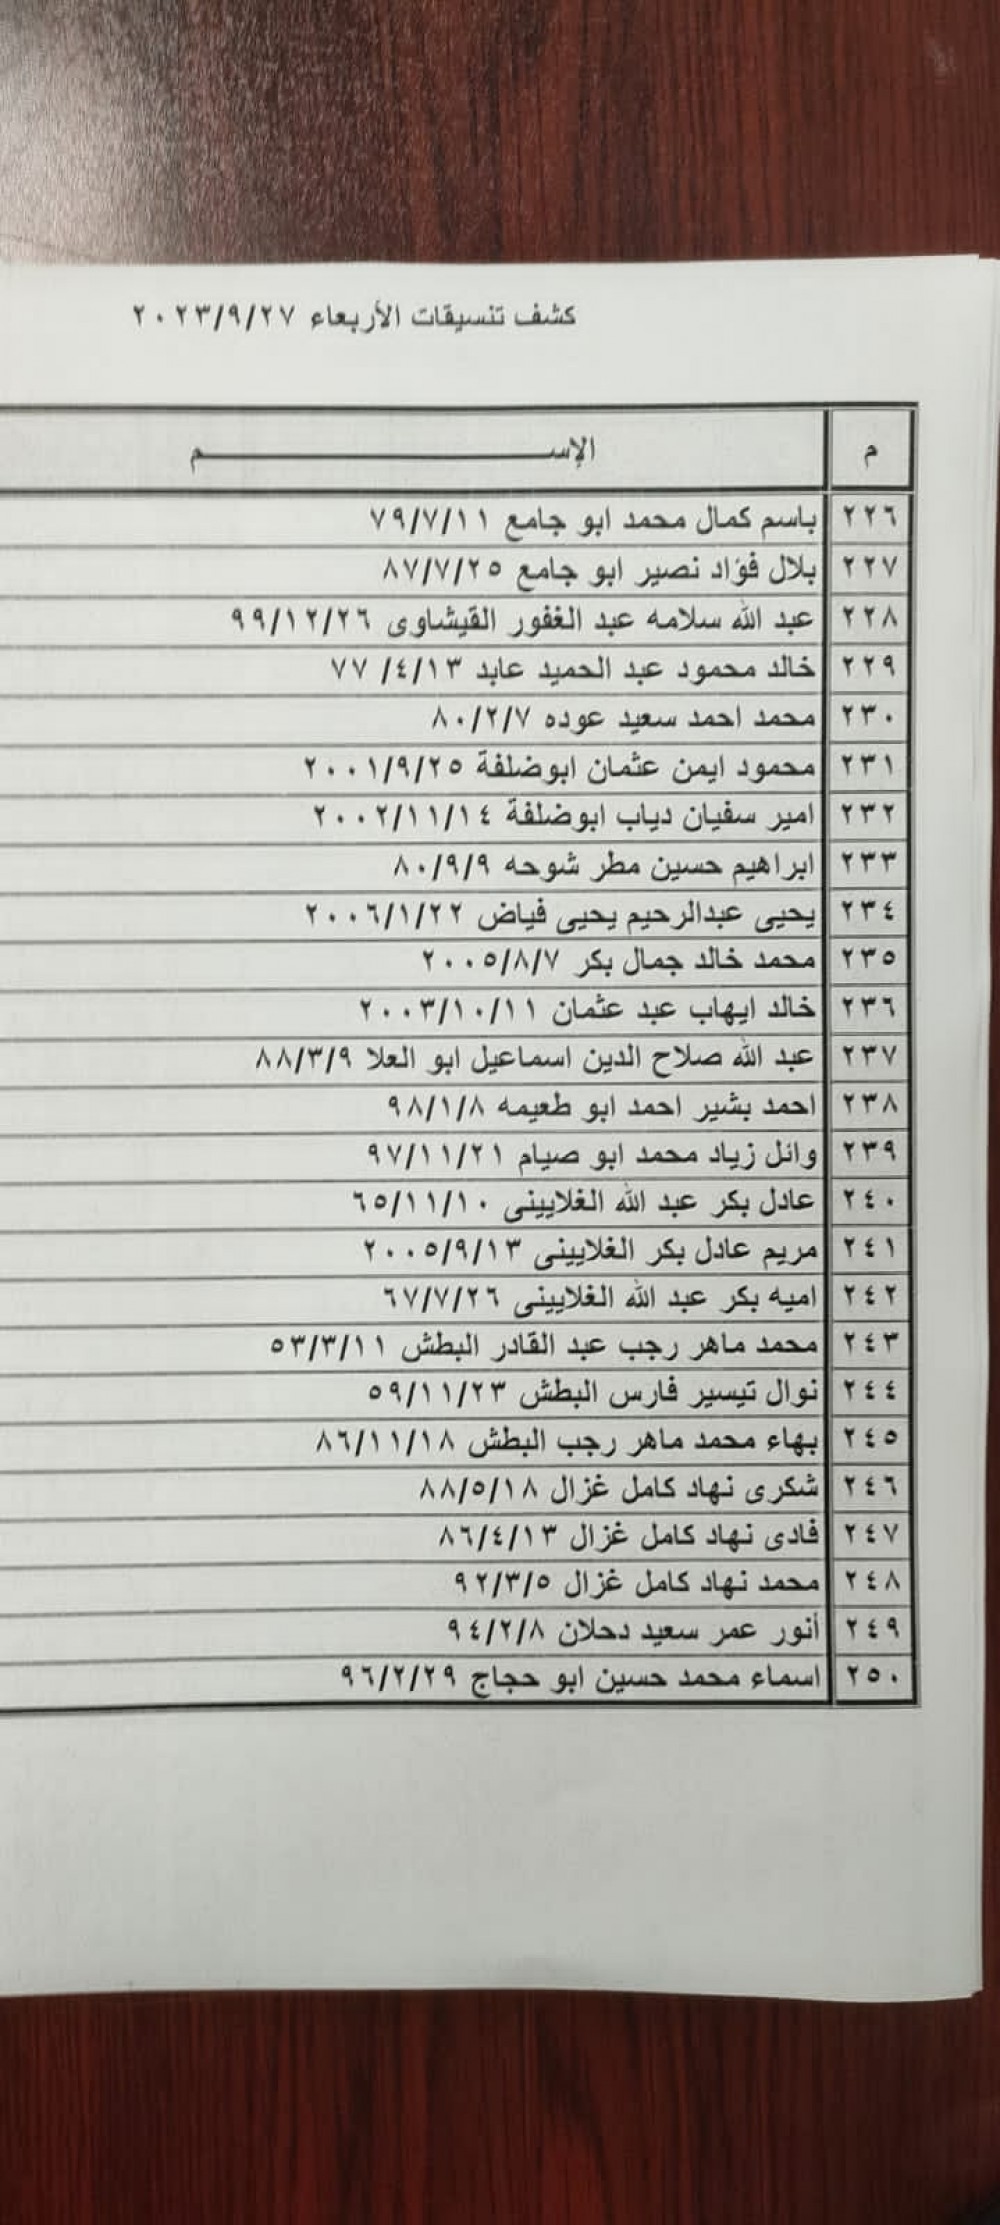 كشف تنسيقات الأربعاء ٢٠٢٣/٩/٢٧
م الإســـــــــــــــــــــــــــــــم
٢٢٦ باسم كمال محمد ابو جامع ٧٩/٧/١١
٢٢٧ بلال فؤاد نصير ابو جامع ٨٧/٧/٢٥
٢٢٨ عبد الله سلامه عبد الغفور القيشاوى ٩٩/١٢/٢٦
٢٢٩ خالد محمود عبد الحميد عابد ٧٧ /٤/١٣
٢٣٠ محمد احمد سعيد عوده ٨٠/٢/٧
٢٣١ محمود ايمن عثمان ابوضلفة ٢٠٠١/٩/٢٥
٢٣٢ امير سفيان دياب ابوضلفة ٢٠٠٢/١١/١٤
٢٣٣ ابراهيم حسين مطر شوحه ٨٠/٩/٩
٢٣٤ يحيى عبدالرحيم يحيى فياض ٢٠٠٦/١/٢٢
٢٣٥ محمد خالد جمال بكر ٢٠٠٥/٨/٧
٢٣٦ خالد ايهاب عبد عثمان ٢٠٠٣/١٠/١١
٢٣٧ عبد الله صلاح الدين اسماعيل ابو العلا ٨٨/٣/٩
٢٣٨ احمد بشير احمد ابو طعيمه ٩٨/١/٨
٢٣٩ وائل زياد محمد ابو صيام ٩٧/١١/٢١
٢٤٠ عادل بكر عبد الله الغلايينى ٦٥/١١/١٠
٢٤١ مريم عادل بكر الغلايينى ٢٠٠٥/٩/١٣
٢٤٢ اميه بكر عبد الله الغلايينى ٦٧/٧/٢٦
٢٤٣ محمد ماهر رجب عبد القادر البطش ٥٣/٣/١١
٢٤٤ نوال تيسير فارس البطش ٥٩/١١/٢٣
٢٤٥ بهاء محمد ماهر رجب البطش ٨٦/١١/١٨
٢٤٦ شكرى نهاد كامل غزال ٨٨/٥/١٨
٢٤٧ فادى نهاد كامل غزال ٨٦/٤/١٣
٢٤٨ محمد نهاد كامل غزال ٩٢/٣/٥
٢٤٩ أنور عمر سعيد دحلان ٩٤/٢/٨
٢٥٠ اسماء محمد حسين ابو حجاج ٩٦/٢/٢٩